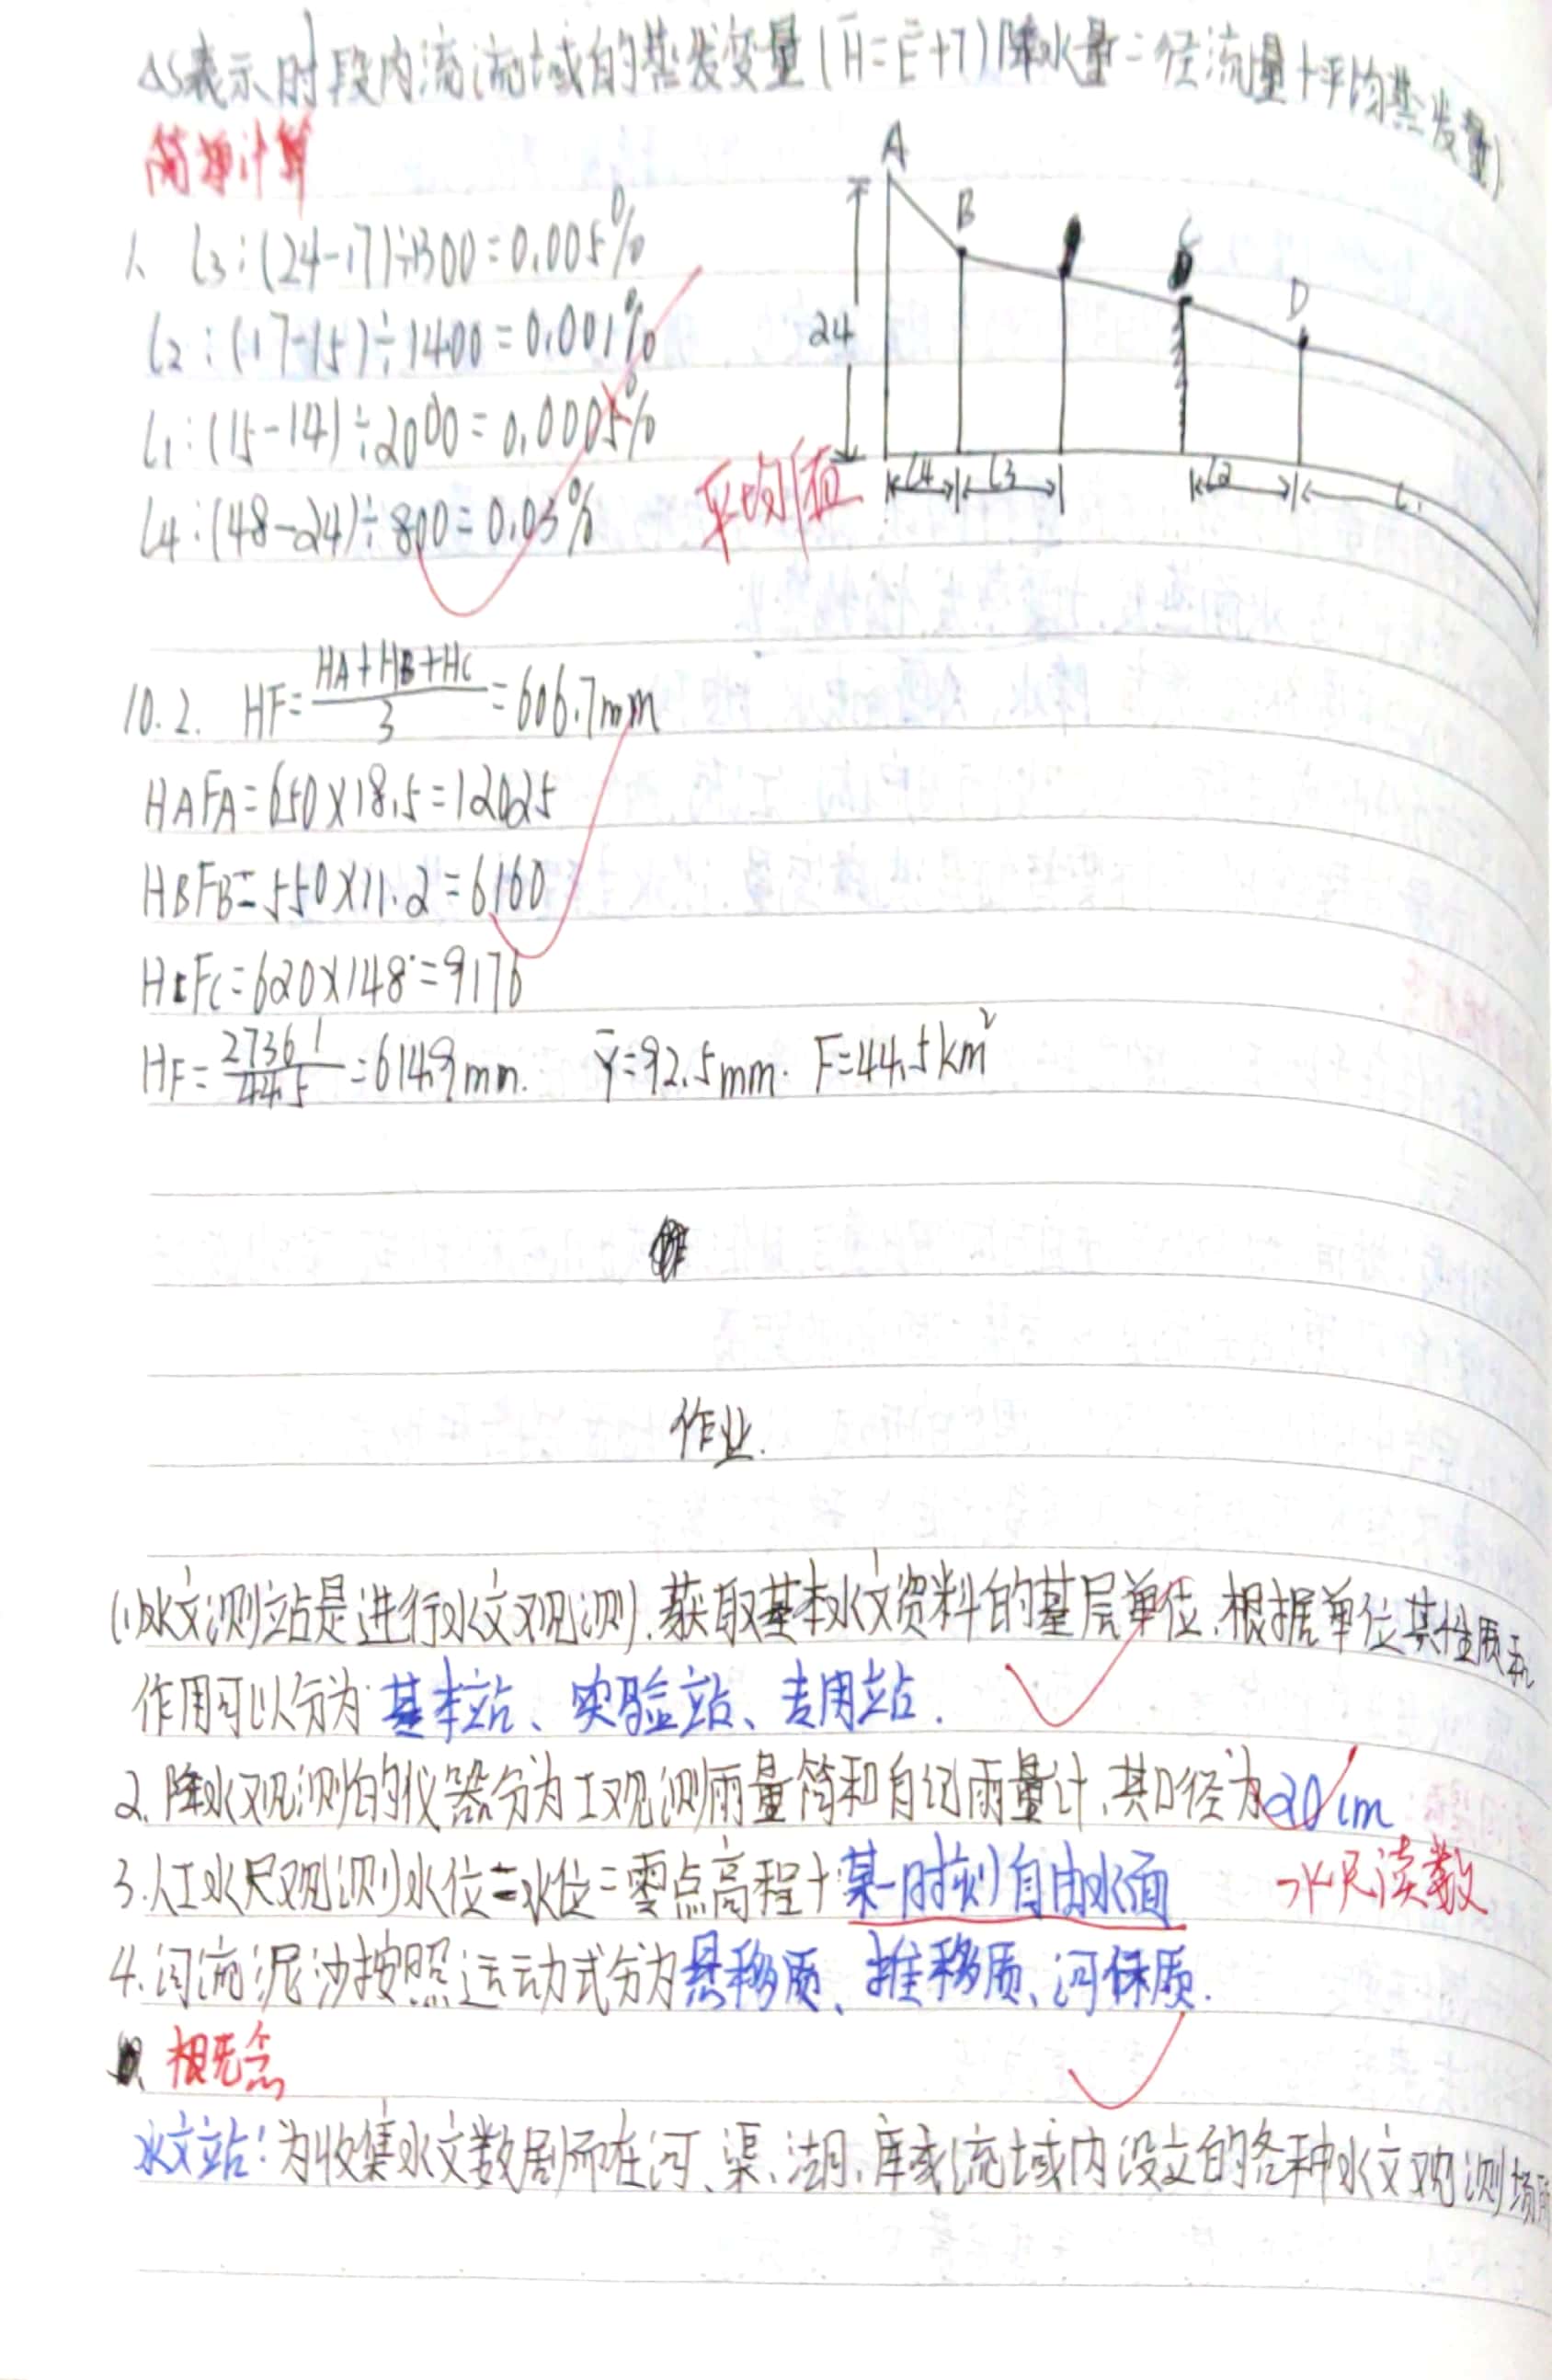 △S表示时段内流流域的蒸发变量(H̄=Ē+T)降水量=径流量+平均蒸发量)
简单计算
A
1、 l3:(24-17)÷1300=0.005%
B
C
l2:(17-15)÷1400=0.001%
D
24
l1:(15-14)÷2000=0.0005%
平均值
l4 l3 l2 l1
l4:(48-24)÷800=0.03%
10.2. HF=(HA+HB+HC)/3=606.7mm
HAFA=650×18.5=12025
HBFB=550×11.2=6160
HcFc=620×148=9176
HF=27361/44.5=614.9mm. Ȳ=92.5mm. F=44.5km²
作业.
(1)水文测站是进行水文观测.获取基本水文资料的基层单位.根据单位其性质和
作用可以分为基本站、实验站、专用站.
2.降水观测的仪器分为工观测雨量筒和自记雨量计,其口径为20cm
3.人工水尺观测水位=水位=零点高程+某一时刻自由水面 →水尺读数
4.河流泥沙按照运动式分为悬移质、推移质、河床质.
概念
水文站:为收集水文数据而在河、渠、湖、库或流域内设立的各种水文观测场所